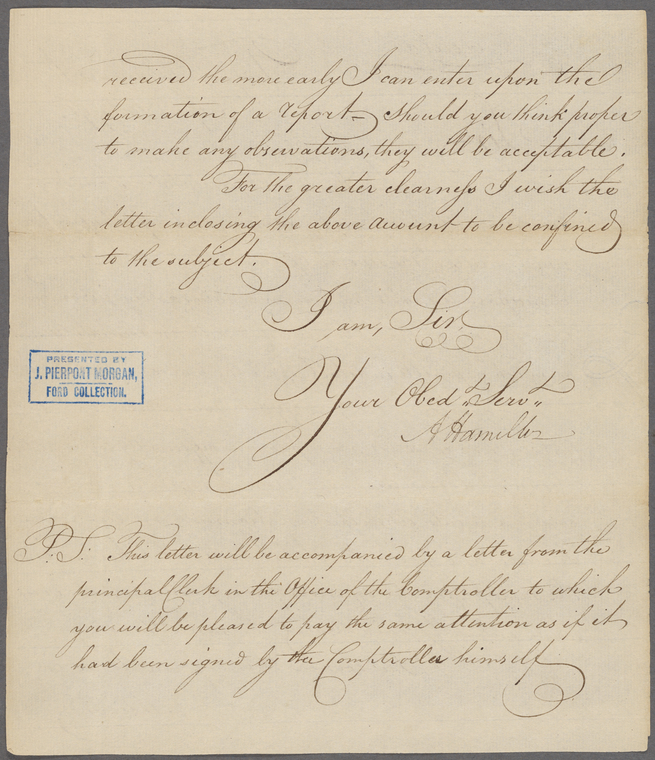 received the more early I can enter upon the
formation of a report — Should you think proper
to make any observations, they will be acceptable.
For the greater clearness I wish the
letter inclosing the above account to be confined
to the subject.
I am, Sir.
PRESENTED BY
J. PIERPONT MORGAN,
FORD COLLECTION.
Your Obedt. Servt.
A Hamilton
P: S: This letter will be accompanied by a letter from the
principal Clerk in the Office of the Comptroller to which
you will be pleased to pay the same attention as if it
had been signed by the Comptroller himself